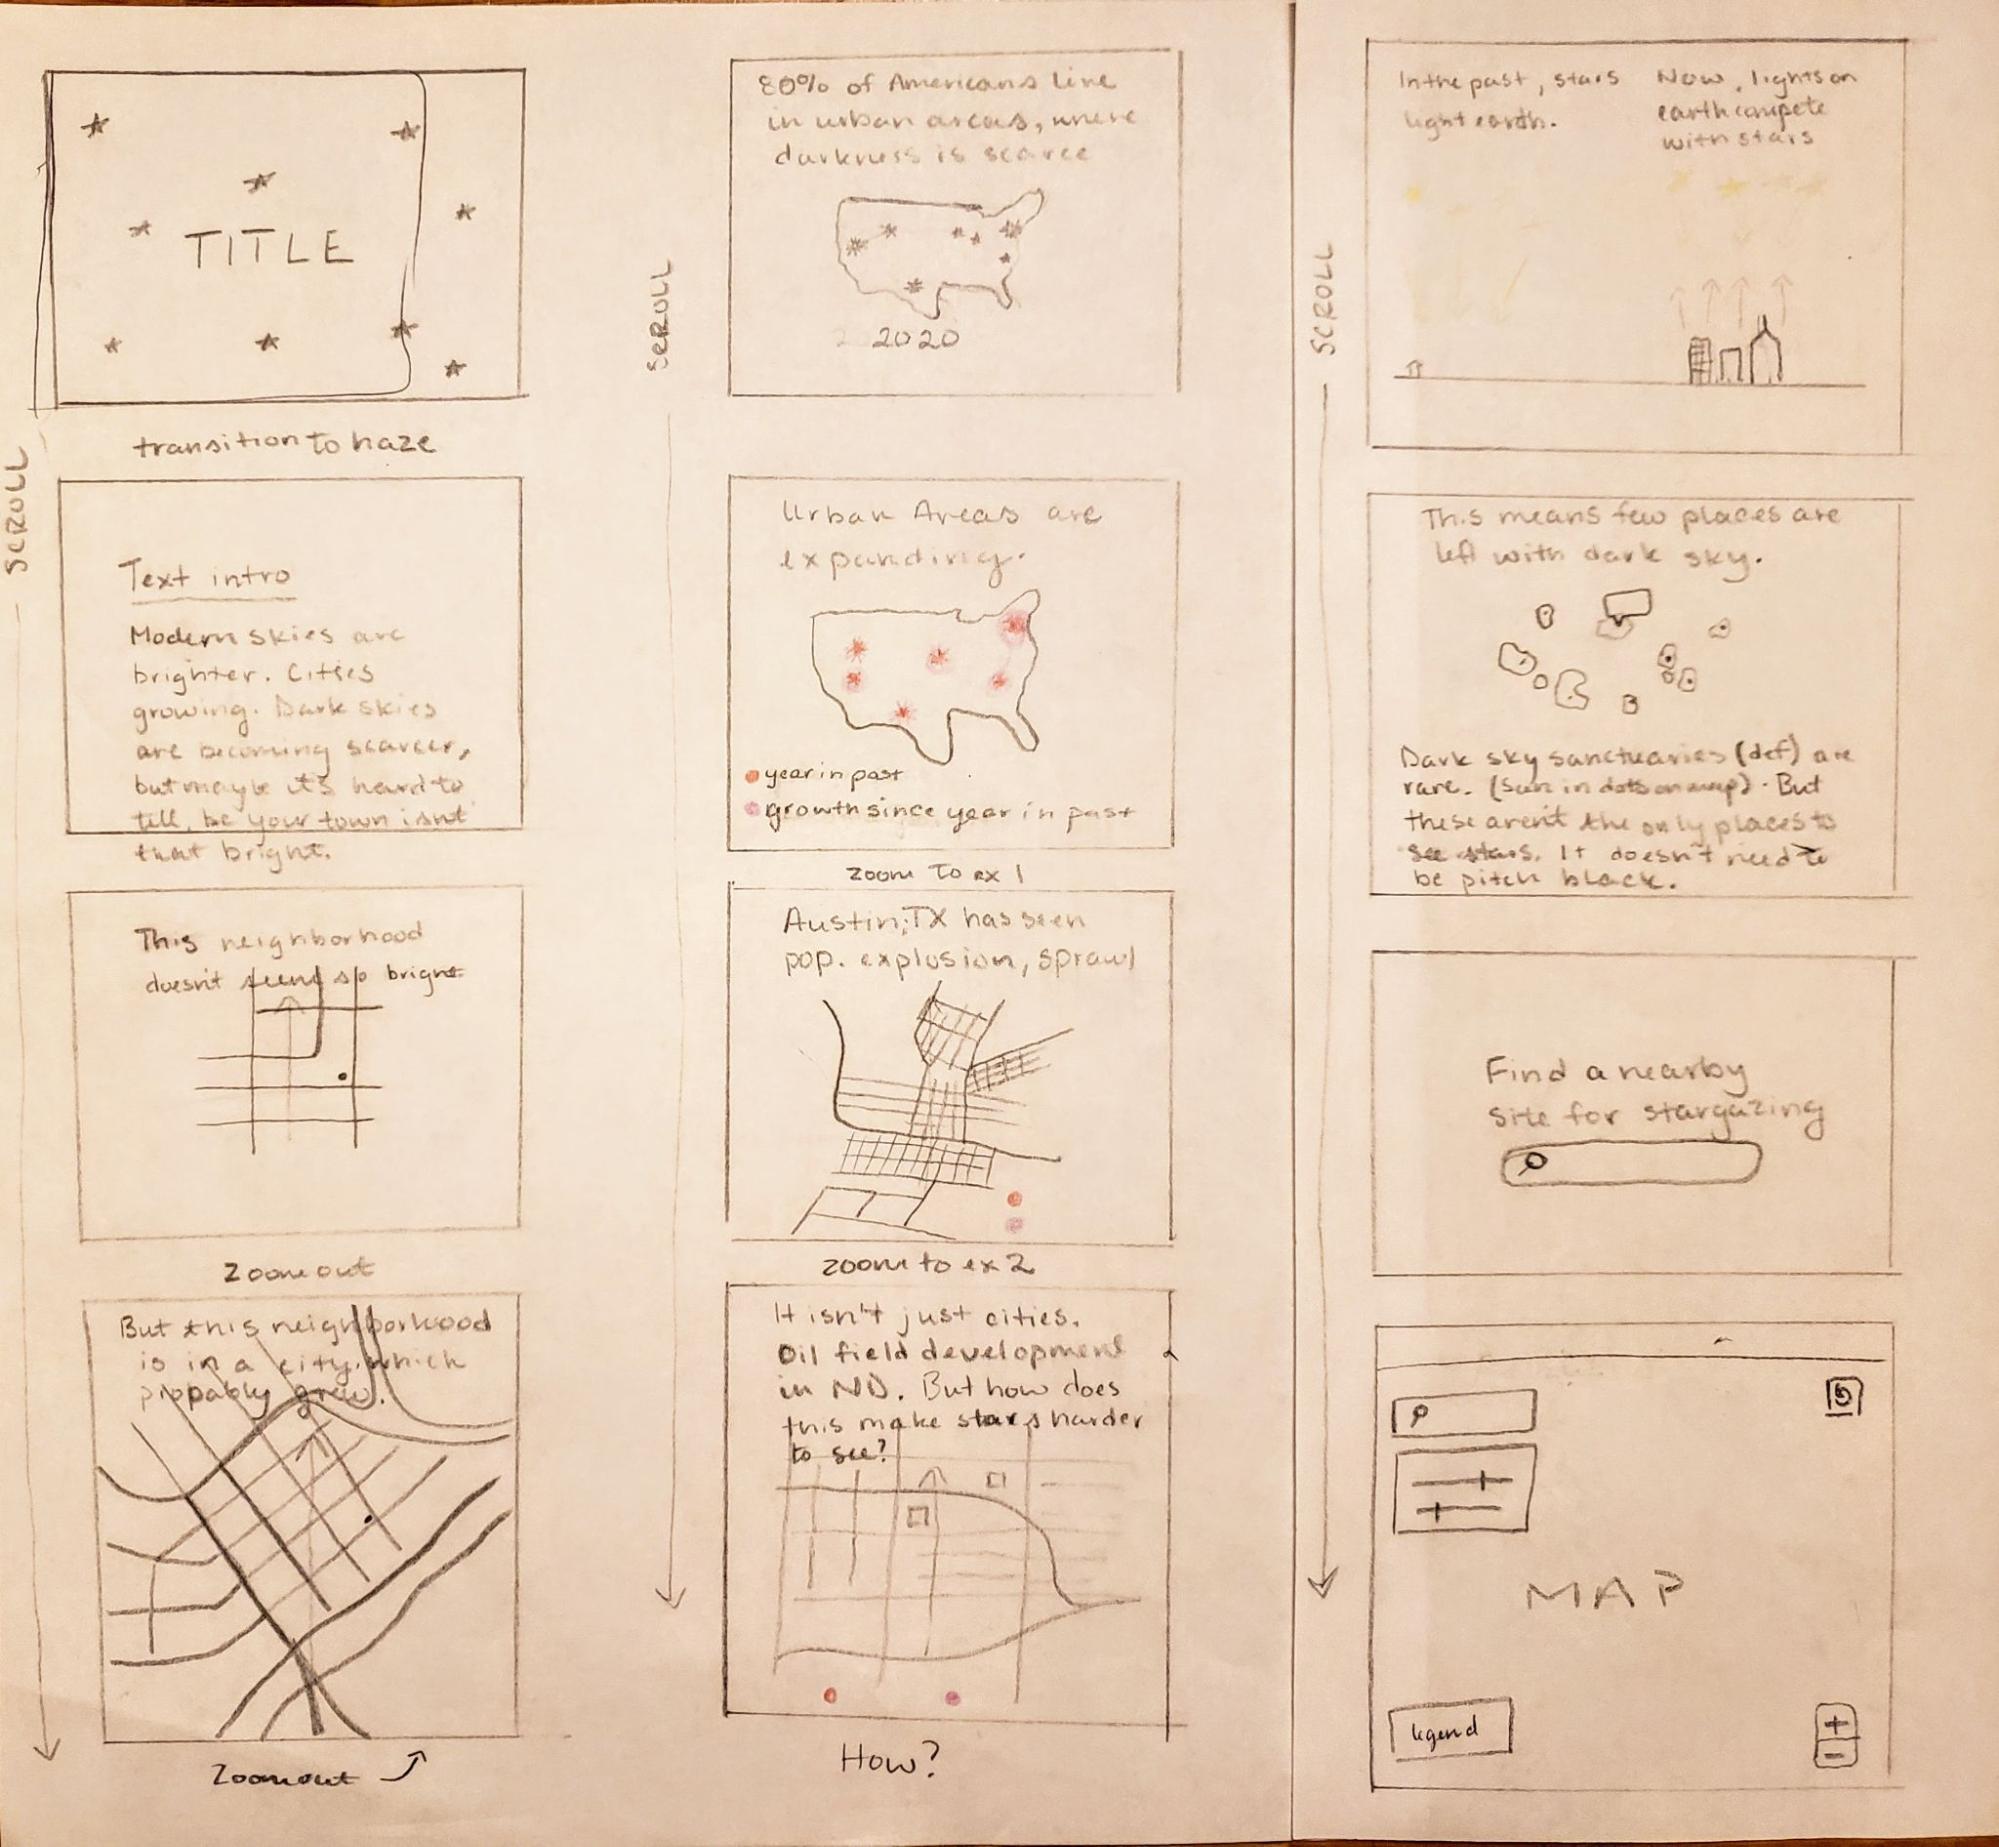 TITLE
SCROLL
transition to haze
Text intro
Modern skies are
brighter. Cities
growing. Dark skies
are becoming scarcer,
but maybe it's hard to
tell, bc your town isn't
that bright.
This neighborhood
doesn't seem so bright
Zoom out
But this neighborhood
is in a city, which
probably grew.
Zoom out
80% of Americans live
in urban areas, where
darkness is scarce
2020
SCROLL
Urban Areas are
expanding.
year in past
growth since year in past
zoom to ex 1
Austin, TX has seen
pop. explosion, sprawl
zoom to ex 2
It isn't just cities.
Oil field development
in ND. But how does
this make stars harder
to see?
How?
In the past, stars
light earth.
Now, lights on
earth compete
with stars
SCROLL
This means few places are
left with dark sky.
Dark sky sanctuaries (def) are
rare. (Sum in dots on map). But
these aren't the only places to
see stars. It doesn't need to
be pitch black.
Find a nearby
site for stargazing
MAP
legend
+
-